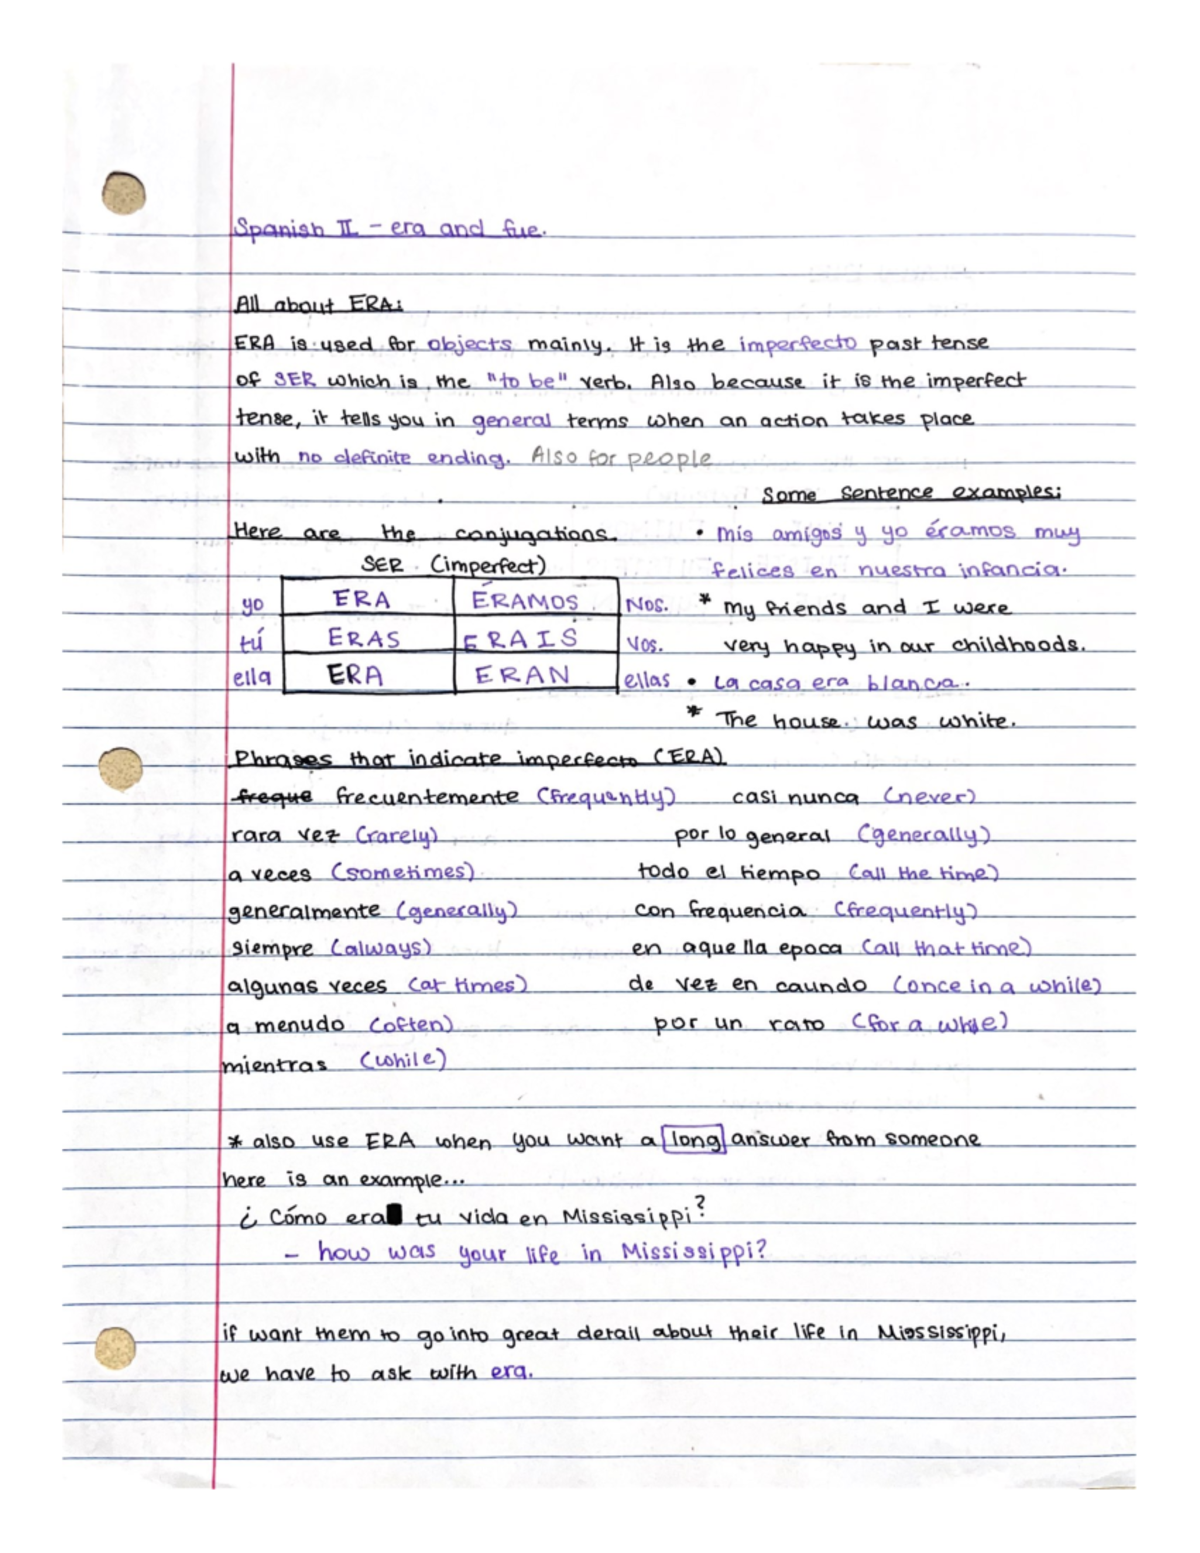 Spanish II - era and fue.
All about ERA:
ERA is used for objects mainly. It is the imperfecto past tense
of SER which is the "to be" verb. Also because it is the imperfect
tense, it tells you in general terms when an action takes place
with no definite ending. Also for people
Some sentence examples:
Here are the conjugations.
• mis amigos y yo éramos muy
felices en nuestra infancia.
SER (imperfect)
yo ERA ÉRAMOS Nos.
* my friends and I were
tú ERAS ERAIS Vos.
very happy in our childhoods.
ella ERA ERAN ellas
• La casa era blanca.
* The house was white.
Phrases that indicate imperfecto (ERA)
freque frecuentemente (frequently) casi nunca (never)
rara vez (rarely) por lo general (generally)
a veces (sometimes) todo el tiempo (all the time)
generalmente (generally) con frequencia (frequently)
siempre (always) en aquella epoca (all that time)
algunas veces (at times) de vez en caundo (once in a while)
a menudo (often) por un rato (for a while)
mientras (while)
* also use ERA when you want a long answer from someone
here is an example...
¿ Cómo era tu vida en Mississippi?
- how was your life in Mississippi?
if want them to go into great detail about their life in Mississippi,
we have to ask with era.